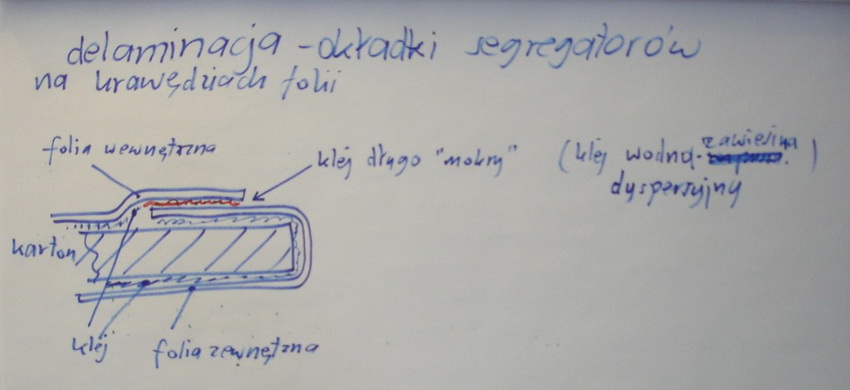 delaminacja - okładki segregatorów
na krawędziach folii
folia wewnętrzna
klej długo "mokry" (klej wodna zawiesina)
dyspersyjny
karton
klej
folia zewnętrzna